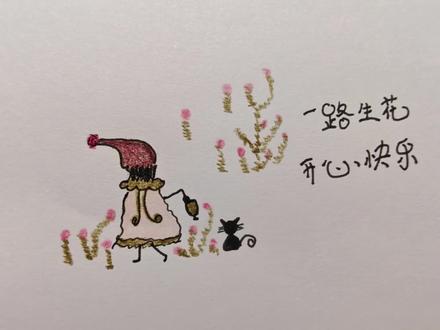 一路生花
开心快乐